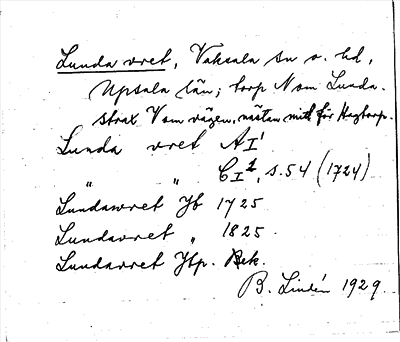 Lunda vret, Vaksala sn o. hd,
Upsala län; torp N om Lunda.
strax V om vägen, nästan mitt för Hagtorp.
Lunda vret AI¹
„ „ CI¹, s. 54 (1724)
Lundawret Jb 1725
Lundavret „ 1825
Lundavret Jtp. Bek.
B. Lindén 1929.